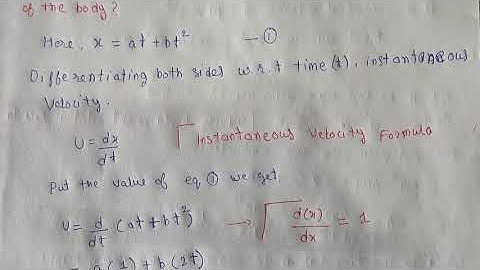 of the body?
Here, x = at + bt² —①
Differentiating both sides w.r.t time (t), instantaneous
Velocity.
U = dx/dt [Instantaneous Velocity Formula
Put the value of eq ① we get
U = d/dt (at + bt²) → d(x)/dx = 1
= a(1) + b(2t)